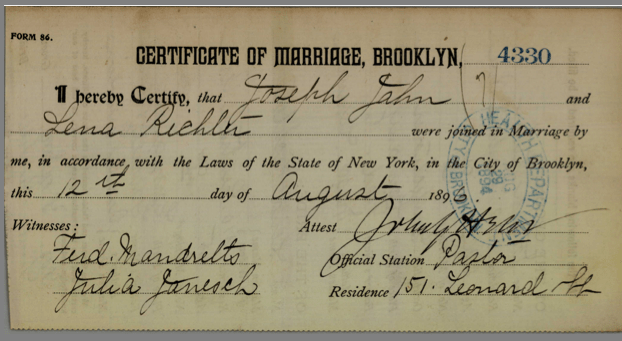 FORM 86.
CERTIFICATE OF MARRIAGE, BROOKLYN, 4330
I hereby Certify, that Joseph Jahn and
Lena Richter were joined in Marriage by
me, in accordance with the Laws of the State of New York, in the City of Brooklyn,
this 12th day of August 189
Witnesses: Attest
Ferd. Mandretts
Official Station Pastor
Julia Janesch
Residence 151. Leonard St
HEALTH DEPARTMENT
AUG
29
1894
CITY BROOKLYN